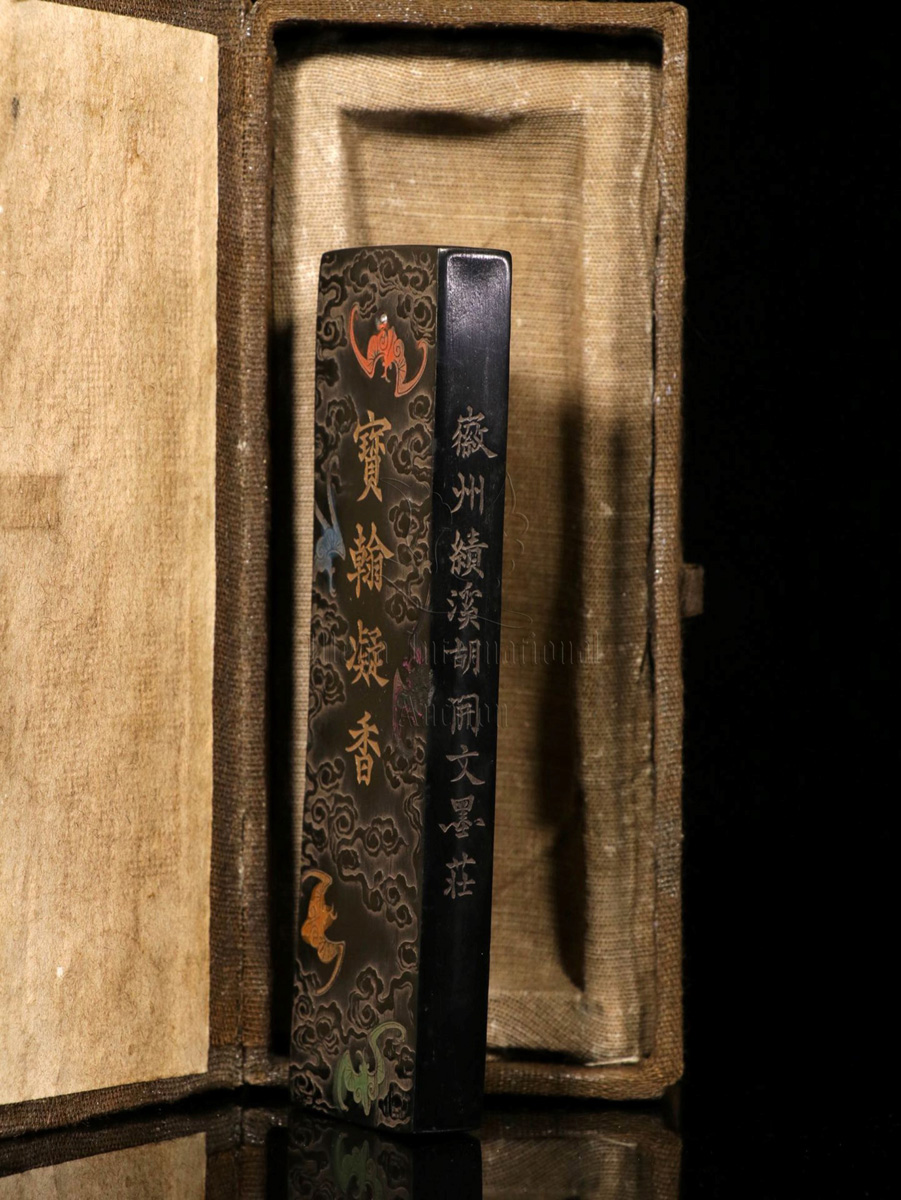 寶翰凝香
徽州績溪胡開文墨莊
International
Auction